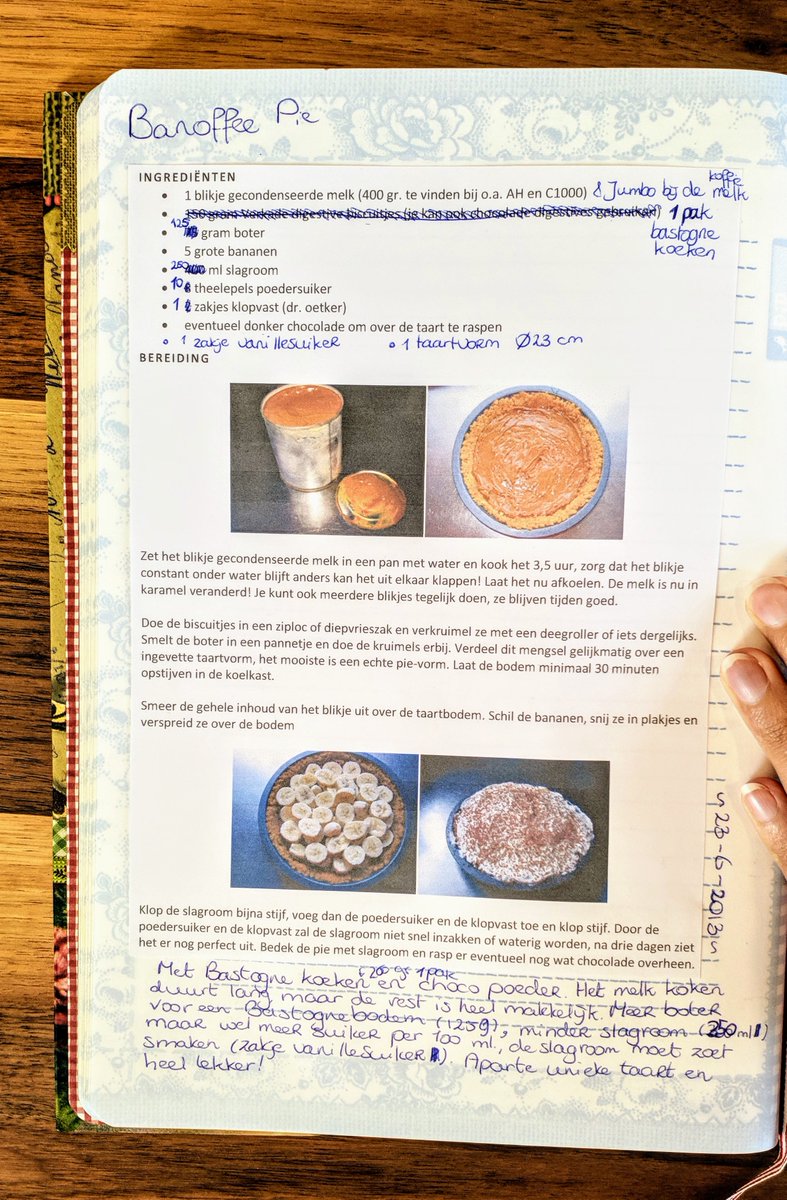 Banoffee Pie
INGREDIËNTEN
• 1 blikje gecondenseerde melk (400 gr. te vinden bij o.a. AH en C1000) & Jumbo bij de koffie melk
• 150 gram Verkade digestive biscuitjes (je kan ook chocolade digestives gebruiken) 1 pak
bastogne
koeken
• 125 gram boter
• 5 grote bananen
• 250 ml slagroom
• 10 theelepels poedersuiker
• 1 zakjes klopvast (dr. oetker)
• eventueel donker chocolade om over de taart te raspen
• 1 zakje vanillesuiker • 1 taartvorm Ø23 cm
BEREIDING
Zet het blikje gecondenseerde melk in een pan met water en kook het 3,5 uur, zorg dat het blikje
constant onder water blijft anders kan het uit elkaar klappen! Laat het nu afkoelen. De melk is nu in
karamel veranderd! Je kunt ook meerdere blikjes tegelijk doen, ze blijven tijden goed.
Doe de biscuitjes in een ziploc of diepvrieszak en verkruimel ze met een deegroller of iets dergelijks.
Smelt de boter in een pannetje en doe de kruimels erbij. Verdeel dit mengsel gelijkmatig over een
ingevette taartvorm, het mooiste is een echte pie-vorm. Laat de bodem minimaal 30 minuten
opstijven in de koelkast.
Smeer de gehele inhoud van het blikje uit over de taartbodem. Schil de bananen, snij ze in plakjes en
verspreid ze over de bodem
Klop de slagroom bijna stijf, voeg dan de poedersuiker en de klopvast toe en klop stijf. Door de
poedersuiker en de klopvast zal de slagroom niet snel inzakken of waterig worden, na drie dagen ziet
het er nog perfect uit. Bedek de pie met slagroom en rasp er eventueel nog wat chocolade overheen.
(200 gr 1 pak
Met Bastogne koeken en choco poeder. Het melk koken
duurt lang maar de rest is heel makkelijk. Meer boter
voor een Bastognebodem (125g), minder slagroom (250ml)
maar wel meer suiker per 100 ml, de slagroom moet zoet
smaken (zakje vanillesuiker). Aparte unieke taart en
heel lekker!
23-6-2013